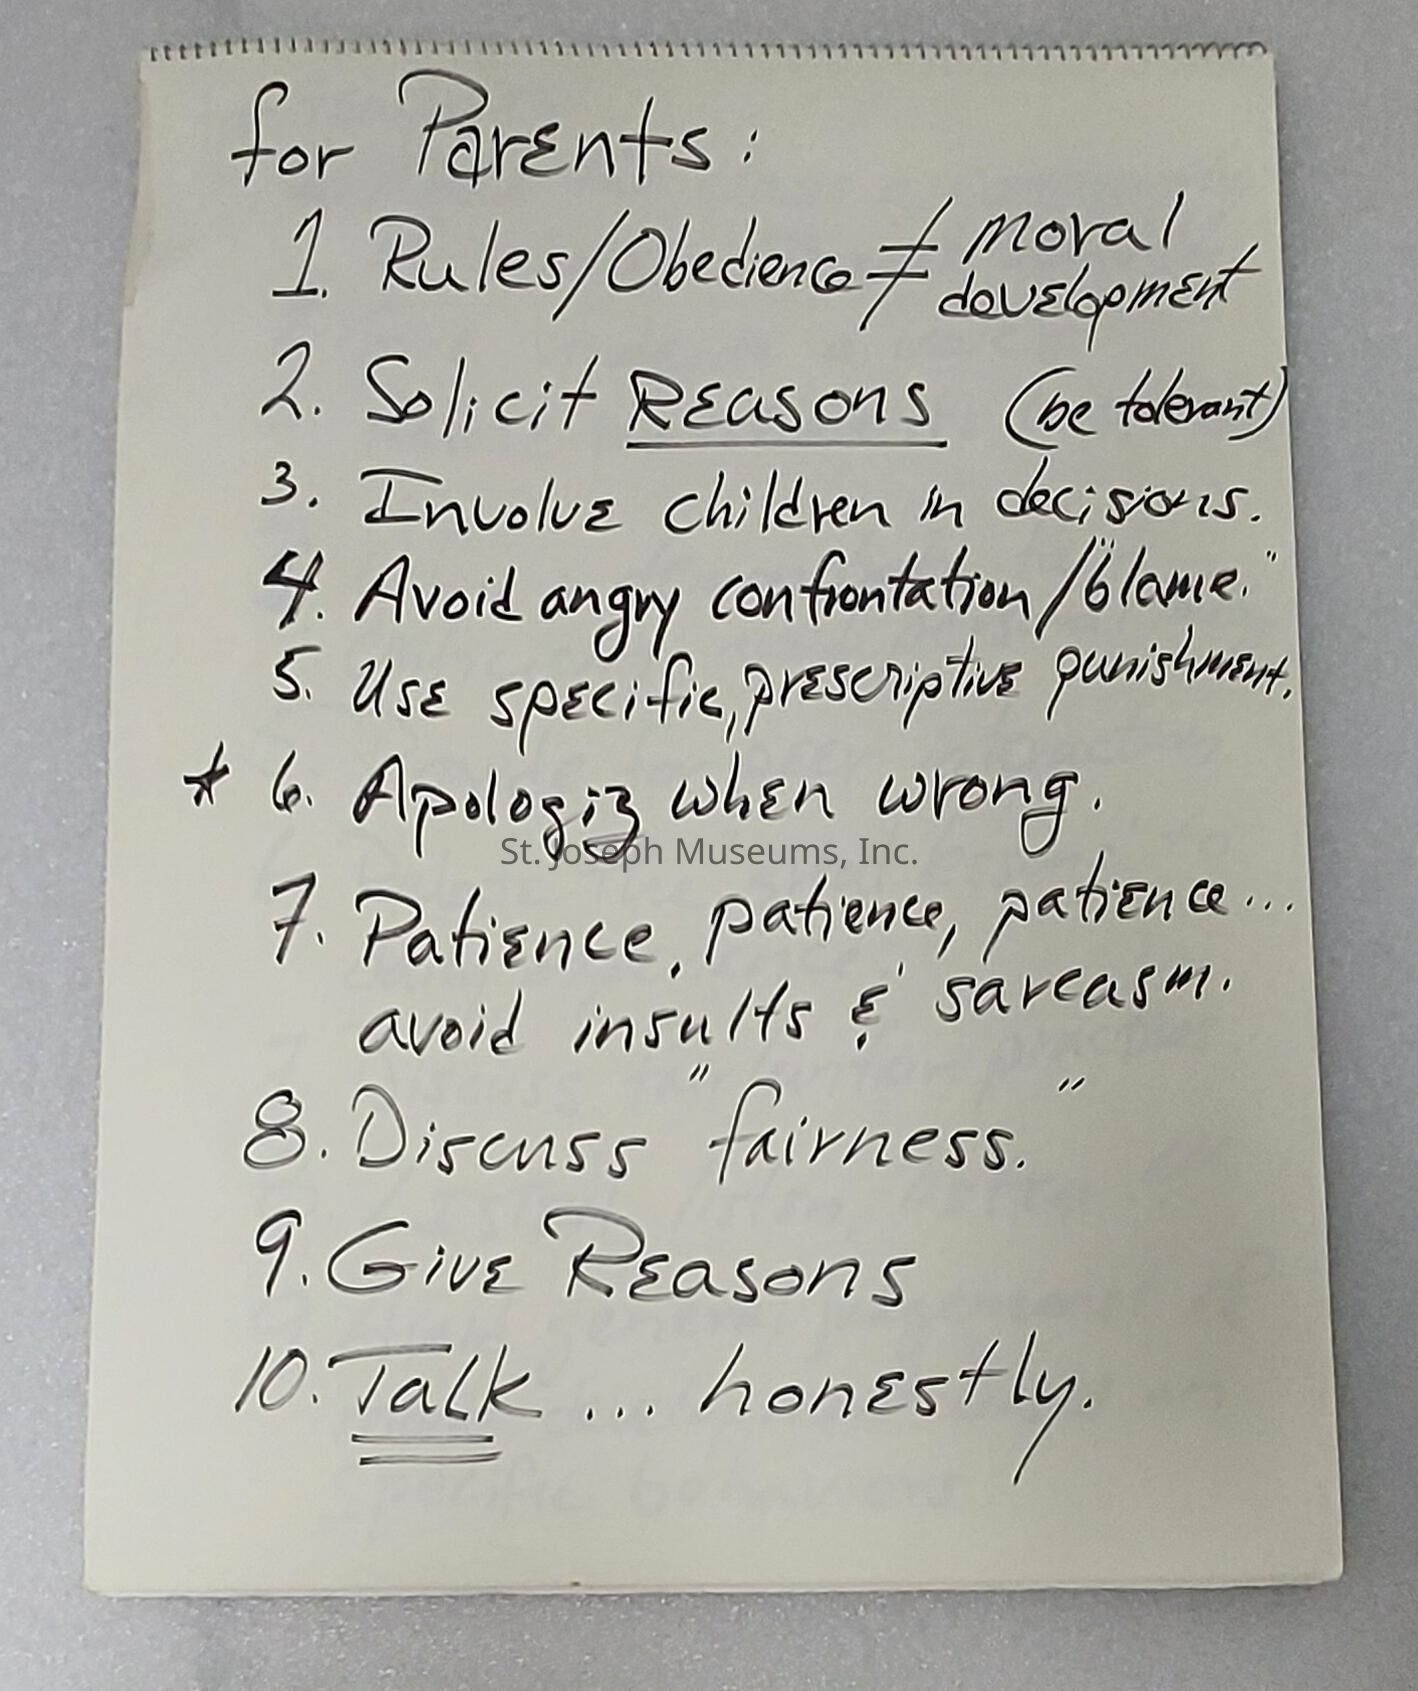 for Parents:
1. Rules/Obedience ≠ moral
development
2. Solicit Reasons (be tolerant)
3. Involve children in decisions.
4. Avoid angry confrontation/"blame."
5. Use specific, prescriptive punishment.
* 6. Apologiz when wrong.
St. Joseph Museums, Inc.
7. Patience, patience, patience...
avoid insults & sarcasm.
8. Discuss "fairness."
9. Give Reasons
10. Talk... honestly.